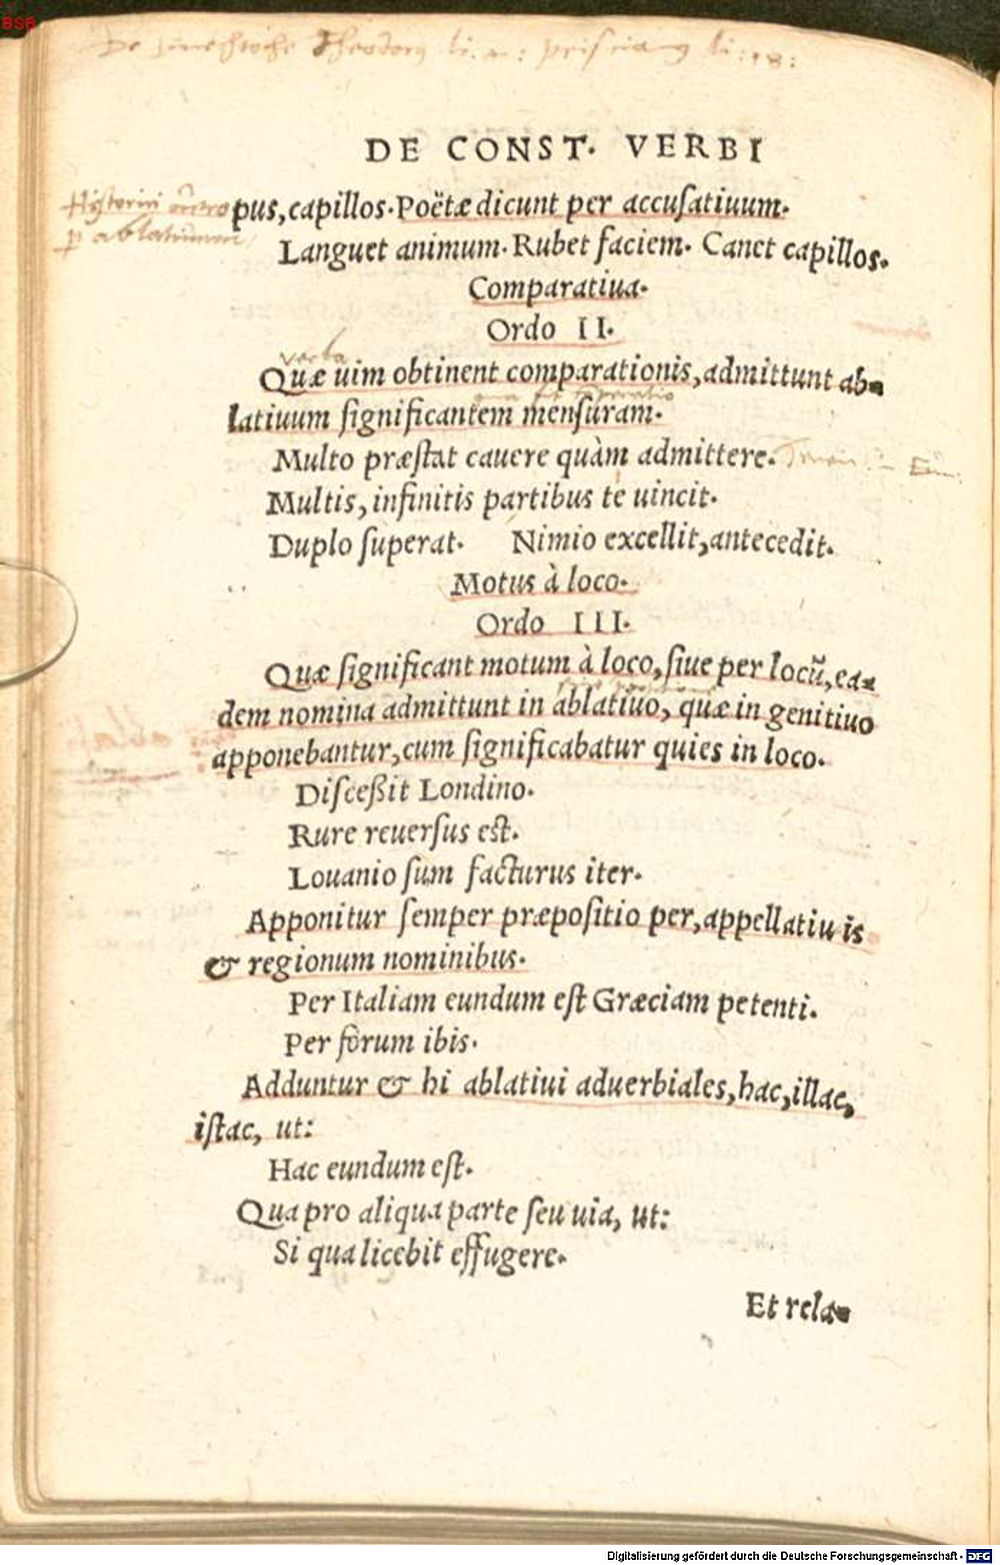 BSB
Theodorus li: priscianus li: 18:
DE CONST. VERBI
pus, capillos. Poëtæ dicunt per accuſatiuum.
p ablatiuum
Languet animum. Rubet faciem. Canet capillos.
Comparatiua.
Ordo II.
verba
Quæ uim obtinent comparationis, admittunt ab-
latiuum ſignificantem menſuram.
Multo præſtat cauere quàm admittere.
Multis, infinitis partibus te uincit.
Duplo ſuperat. Nimio excellit, antecedit.
Motus à loco.
Ordo III.
Quæ ſignificant motum à loco, ſiue per locũ, ea-
dem nomina admittunt in ablatiuo, quæ in genitiuo
apponebantur, cum ſignificabatur quies in loco.
Diſceßit Londino.
Rure reuerſus eſt.
Louanio ſum facturus iter.
Apponitur ſemper præpoſitio per, appellatiuis
& regionum nominibus.
Per Italiam eundum eſt Græciam petenti.
Per forum ibis.
Adduntur & hi ablatiui aduerbiales, hac, illac,
iſtac, ut:
Hac eundum eſt.
Qua pro aliqua parte ſeu uia, ut:
Si qua licebit effugere.
Et rela-
Digitalisierung gefördert durch die Deutsche Forschungsgemeinschaft - DFG